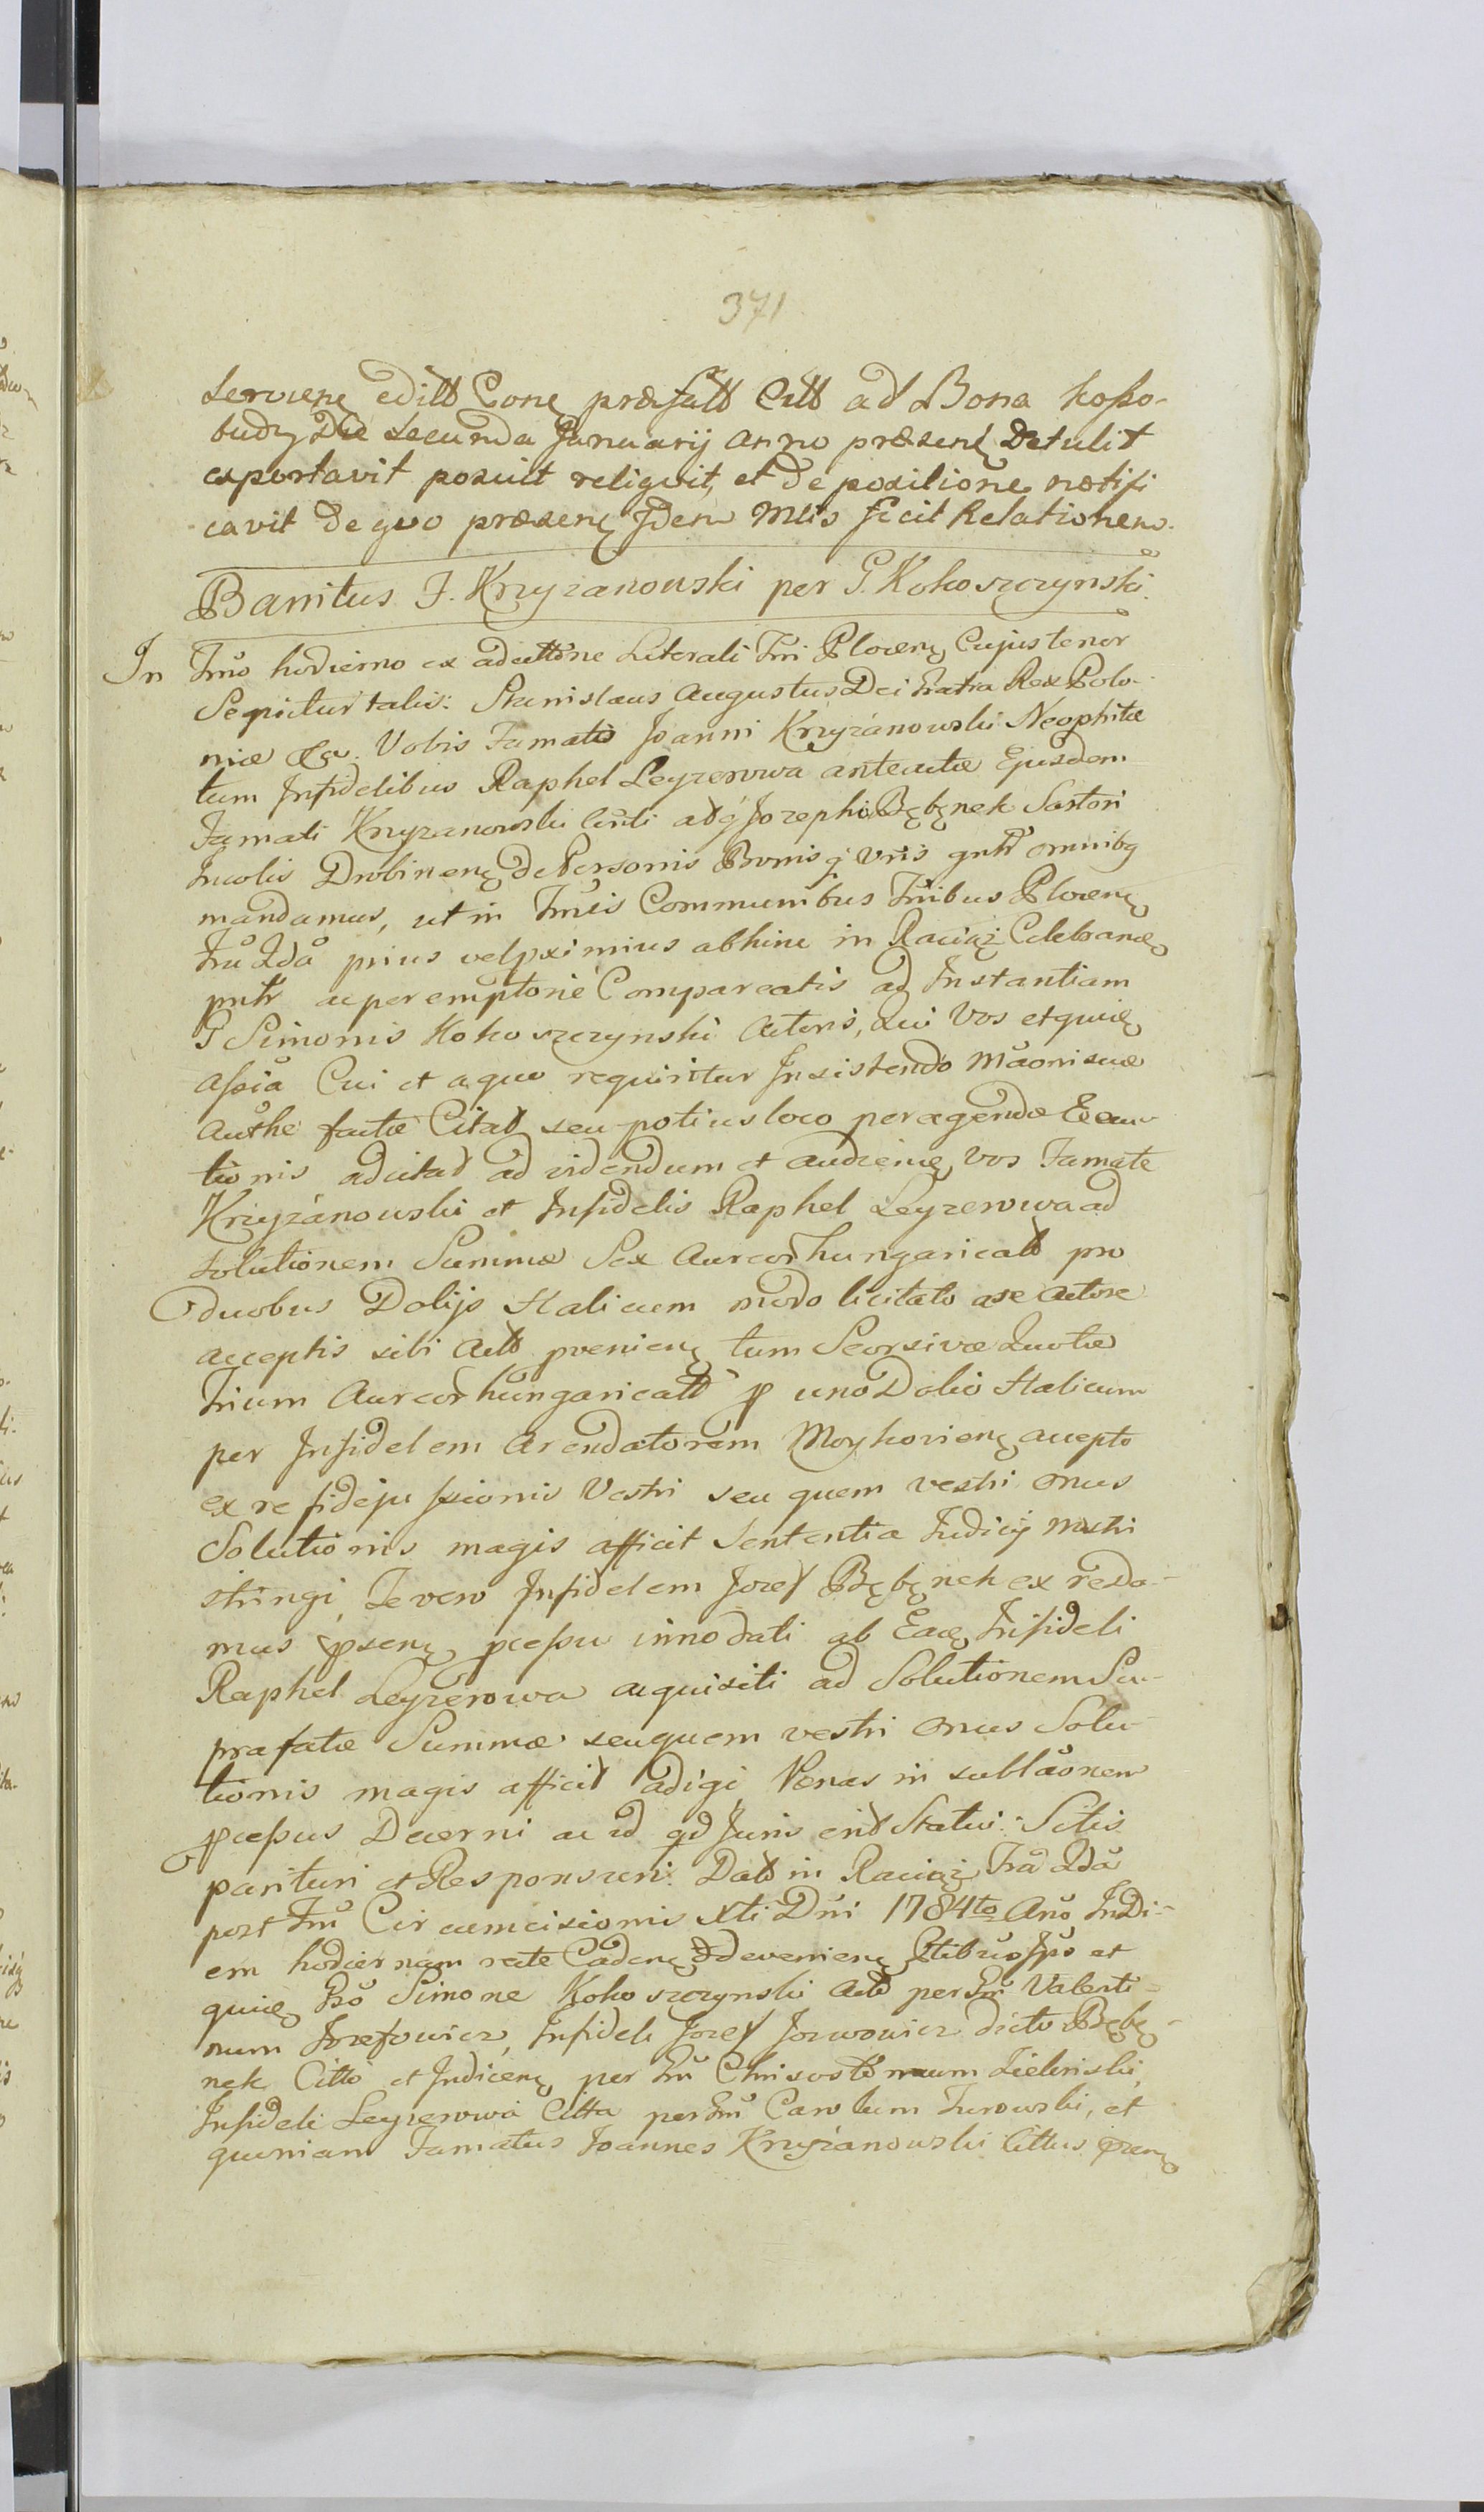 371
Servieñ editt Cone præfatt Citt ad Bona koßo-
budy Die Secunda Januarij anno præsenĩ Detulit
exportavit posuit reliquit, et de positione notifi
cavit de quo præsenę Jdem Mtis fecit Relationem.
Banitus F. Krzyzanowski per G. Kokoszczynski.
In Trño hodierno ex adcittõne Literali Trri Plocenę Cujus tenor
Sequitur talis: Stanislaus Augustus Dei Gratia Rex Polo-
niæ &c. Vobis Famato Joanni Krzyżanowski Neophitæ
tum Infidelibus Raphel Leyzerowa anteactæ Ejusdem
Famati Krzyzanowski Citti adq Jozephi Bębęnek Sartori
Incolis Drobinenę de Personis Bonisq Vris gntr omnibg
mandamus, ut in Trrñis Communibus Trribus Plocenę
Fra 2da prius vel pximius abhinc in Raciąż Celebranę
pntr ac peremptorie Compareatis ad Instantiam
G Simonis Kokoszczynski Actoris, Qui Vos et quię
aßia Cui et a quo requiritur Insistendo Mãoni suæ
Authe factæ Citat seu potius loco peragendæ Execu-
tionis adcitat ad videndum et audienę, vos Famate
Krzyżanowski et Infidelis Raphel Leyzerowa ad
solutionem Summæ Sex Aureor hungaricalt pro
duobus Dolijs Halicum modo licitato a se Actore
acceptis sibi Actt prenienę tum Seorsivæ Quotæ
Trium Aureor hungaricalt p uno Dolio Halicum
per Infidelem Arendatorem Moykovienę accepto
ex re fidejussionis Vestri seu quem vestri onus
Solutionis magis afficit Sententia Judicij nostri
stringi, Te vero Infidelem Jozef Bębęnek ex
mus psenę pceßu innodati ab Eaę Infideli
Raphel Leyzerowa acquisiti ad Solutionem Su-
præfatæ Summæ seu quem vestri onus Solu-
tionis magis afficit adigi Penas in sublãonem
pceßus Decerni ac id qd Juris erit Statui. Sitis
parituri et Responsuri. Datt in Raciąż Fra 2da
post Fm Circumcisionis Xti Dñi 1784to Ano, In Di-
em hodiernam rite Cadenę & devenienę Ptibus Jps et
quię Gso Simone Kokoszczynski Actt per Gm Valenti-
num Jozefowicz, Infideli Jozef Jozwowicz dicto Bębę-
nek Citto et Judicenę per Gm Chrisostomum Zielinski,
Infideli Leyzerowa Citta per Gm Carolum Turowski, et
quoniam Famatus Joannes Krzyżanowski Cittus psenę